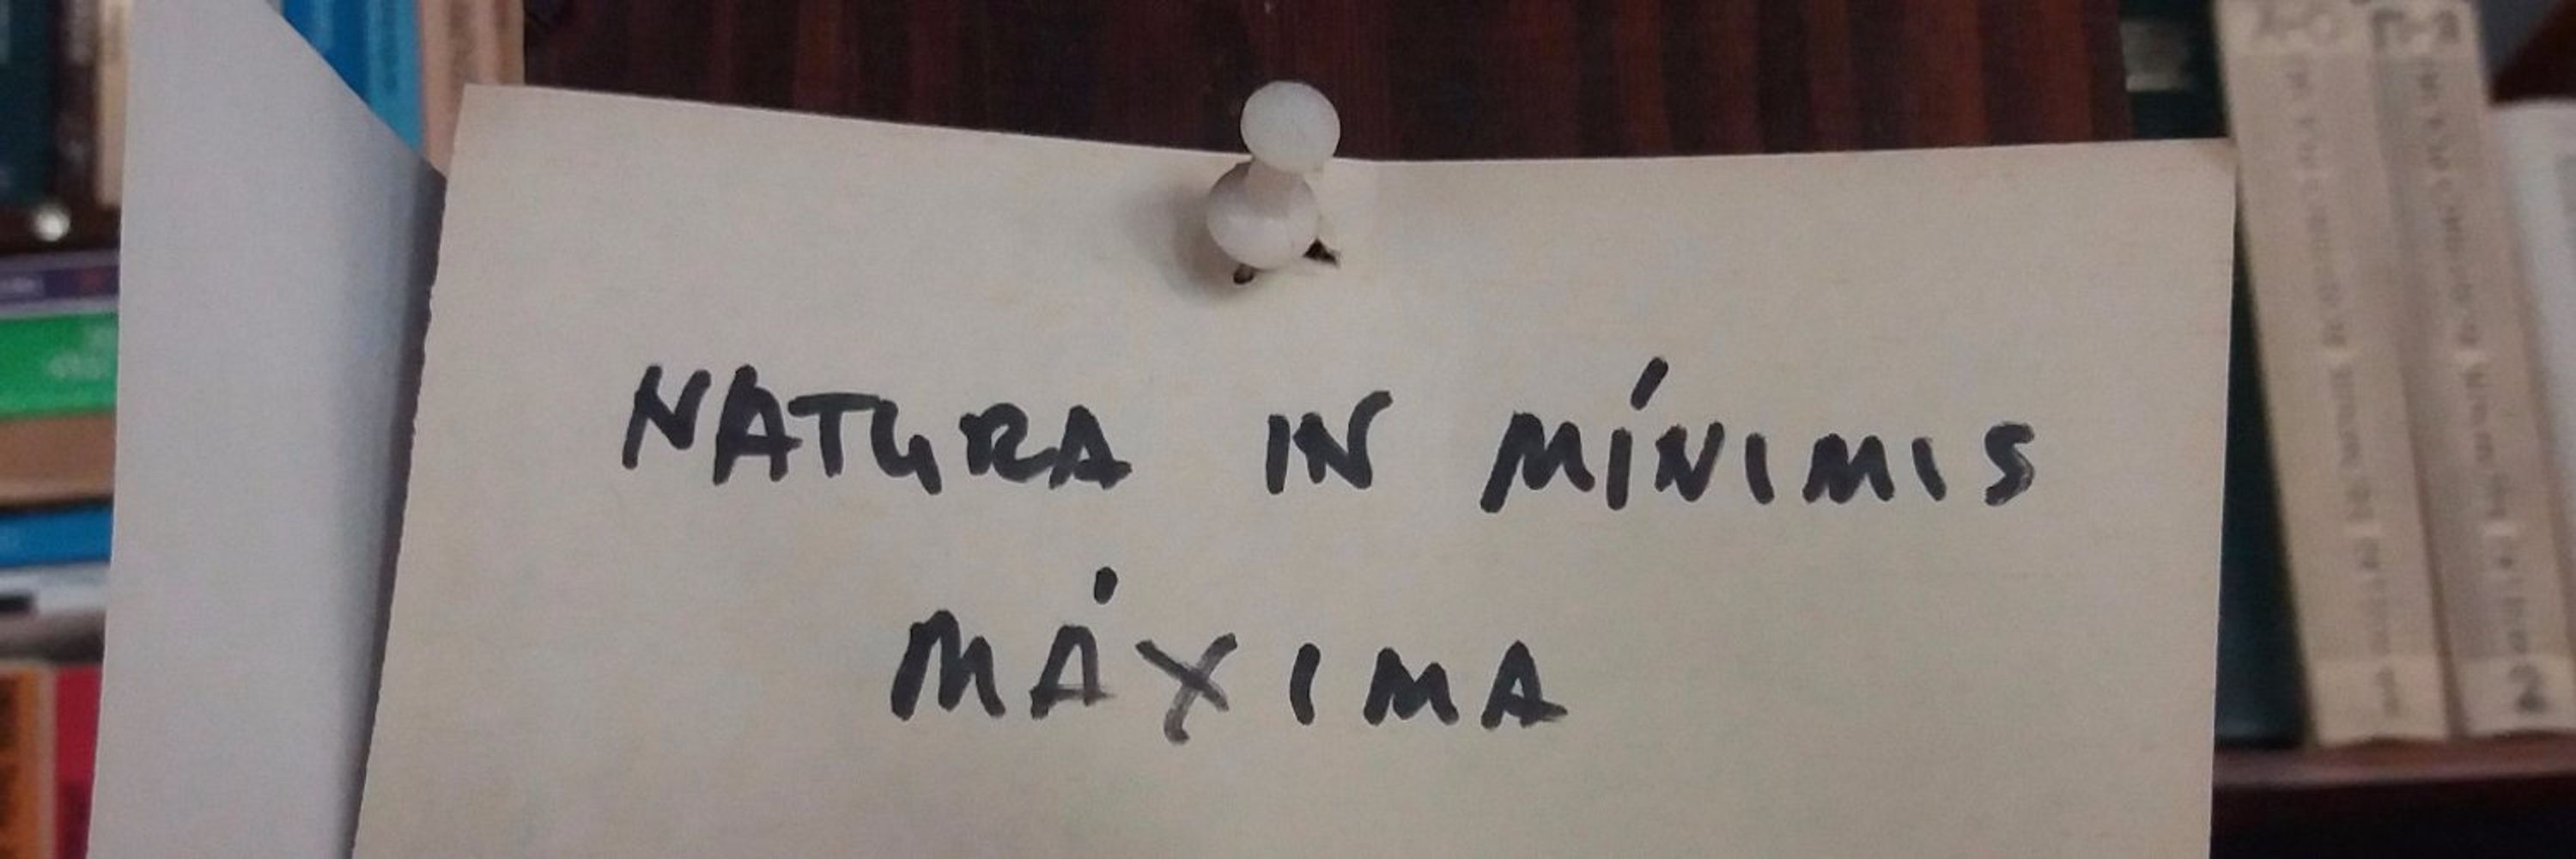 NATURA IN MÍNIMIS
MÁXIMA